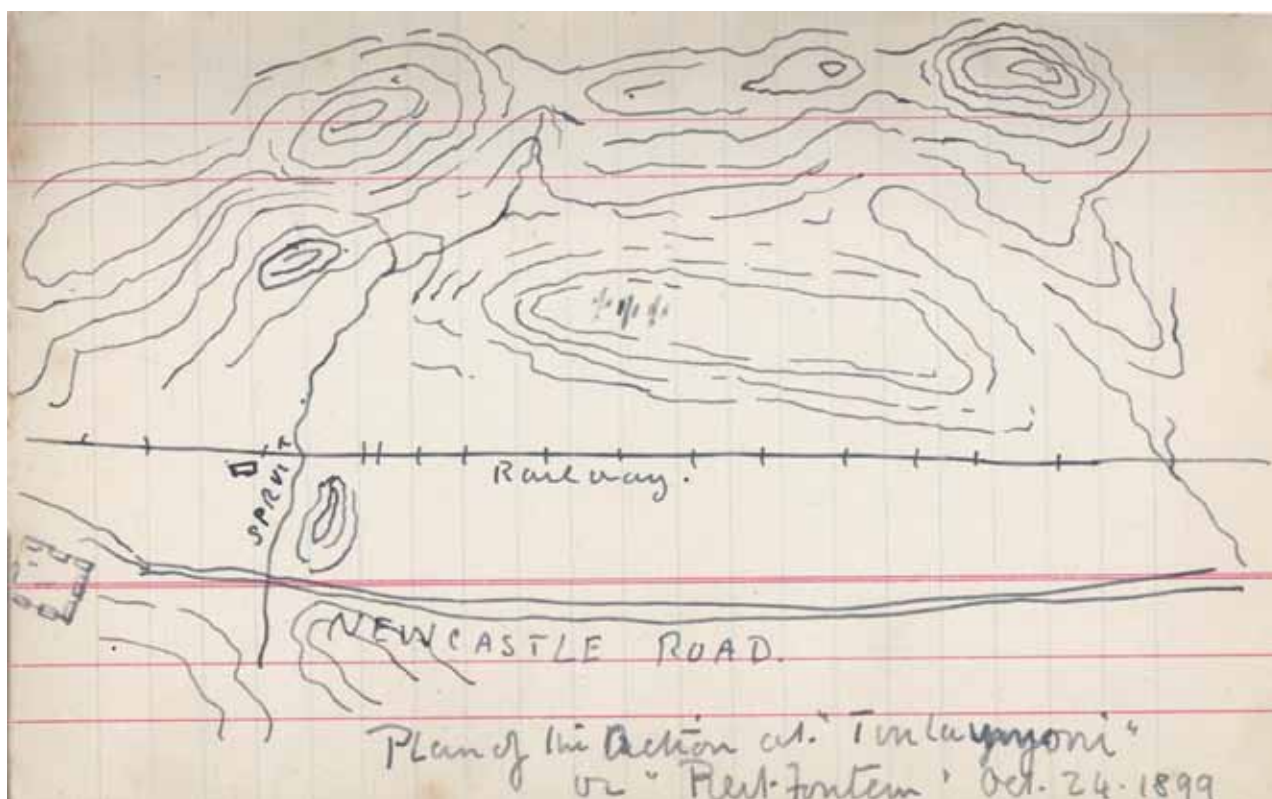 SPRUIT
Railway.
NEWCASTLE ROAD.
Plan of the Action at "Tintanyoni"
or "Reit-fontein" Oct. 24. 1899